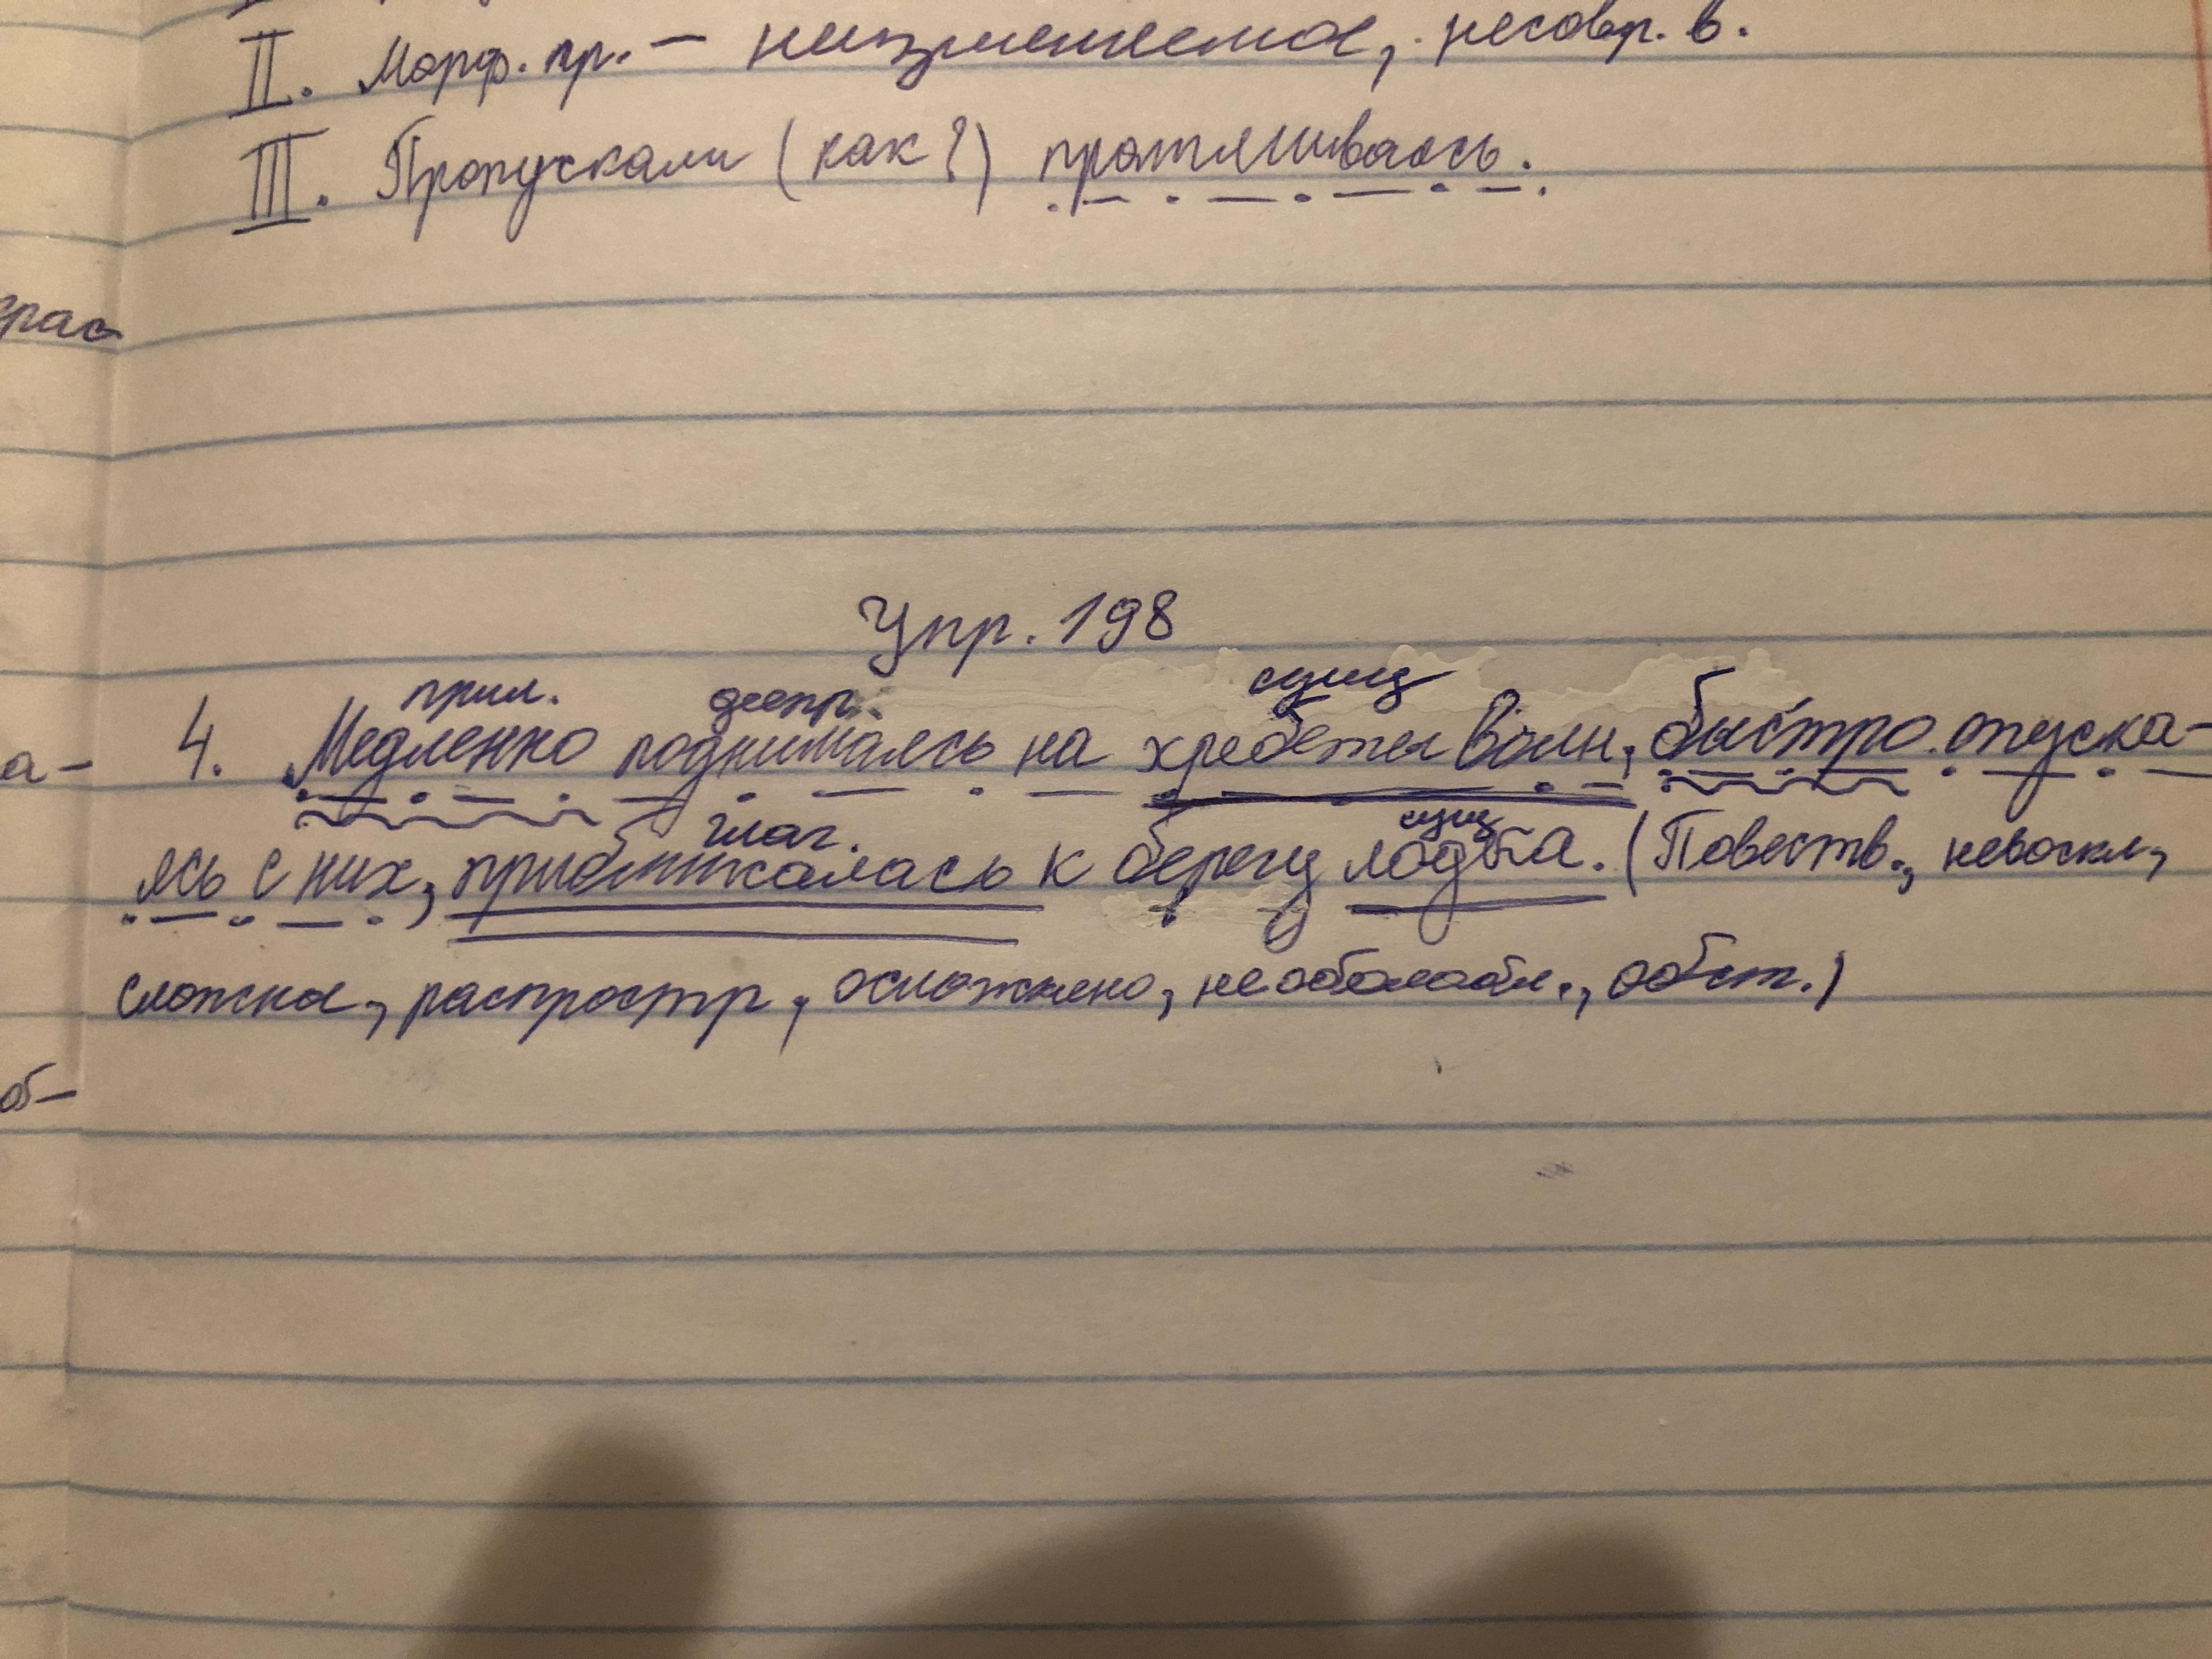 II. Морф. пр. – неизменяемое, несовр. в.
III. Пропускали (как?) протягиваясь.
рас-
Упр. 198
прил. деепр. сущ
а- 4. Медленно поднимаясь на хребеты волн, быстро опуска-
глаг. сущ
ясь с них, приближалась к берегу лодка. (Повеств., невоскл,
сложная, распростр, осложнено, необособл., обст.)
об-